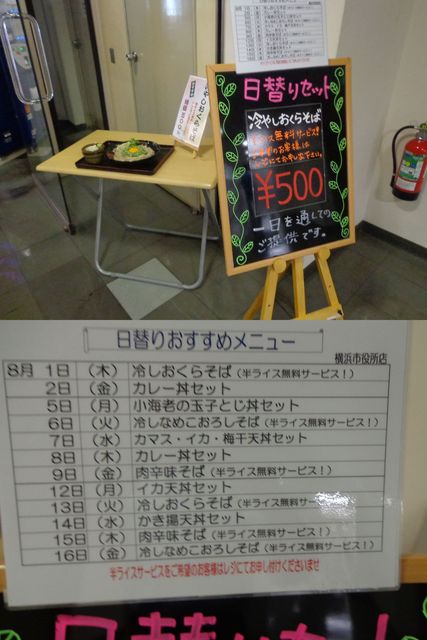 日替りセット
冷やしおくらそば
¥500
一日を通しての
ご提供です。
日替りおすすめメニュー
横浜市役所店
8月 1日 (木) 冷しおくらそば(半ライス無料サービス!)
2日 (金) カレー丼セット
5日 (月) 小海老の玉子とじ丼セット
6日 (火) 冷しなめこおろしそば(半ライス無料サービス!)
7日 (水) カマス・イカ・梅干天丼セット
8日 (木) カレー丼セット
9日 (金) 肉辛味そば(半ライス無料サービス!)
12日 (月) イカ天丼セット
13日 (火) 冷しおくらそば(半ライス無料サービス!)
14日 (水) かき揚天丼セット
15日 (木) 肉辛味そば(半ライス無料サービス!)
16日 (金) 冷しなめこおろしそば(半ライス無料サービス!)
半ライスサービスをご希望のお客様はレジにてお申し付けくださいませ
日替りセット